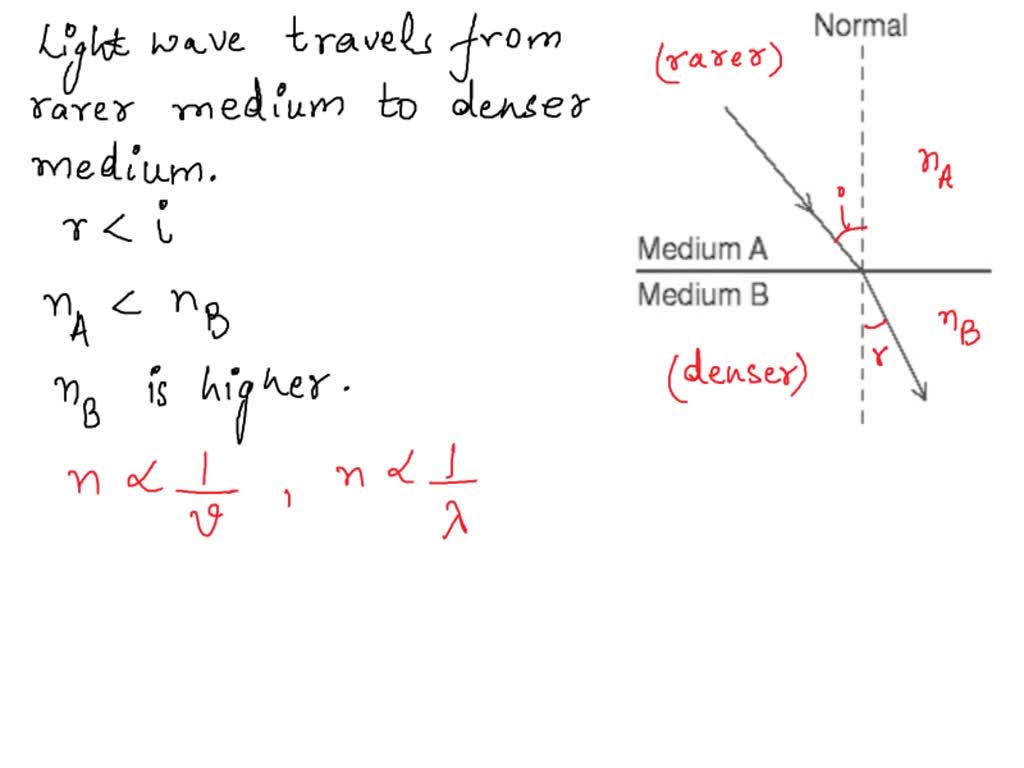 Light wave travels from
rarer medium to denser
medium.
r < i
n_A < n_B
n_B is higher.
n ∝ 1/v , n ∝ 1/λ
Normal
(rarer)
n_A
i
Medium A
Medium B
n_B
r
(denser)